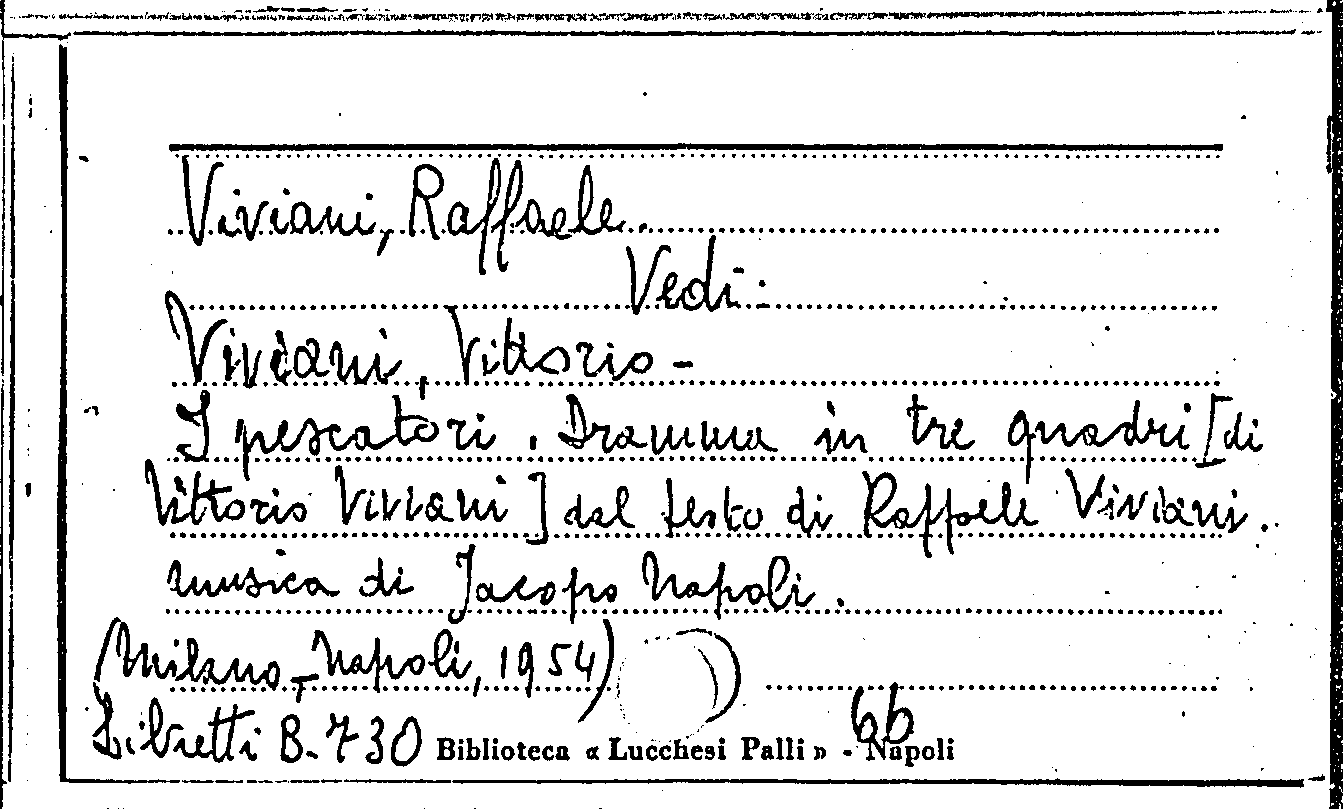 Viviani, Raffaele.
Vedi:
Viviani, Vittorio -
I pescatori. Dramma in tre quadri [di
Vittorio Viviani] dal testo di Raffaele Viviani.
musica di Jacopo Napoli.
(Milano-Napoli, 1954)
66
Libretti B. 730 Biblioteca « Lucchesi Palli » - Napoli